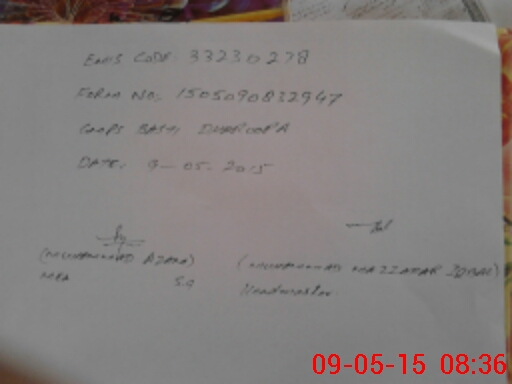 EMIS CODE: 33230278
FORM NO: 1505090832947
GMPS BASTI DHAROOPA
DATE: 9-05-2015
(MUHAMMAD AZAM) (MUHAMMAD MAZZAHAR IQBAL)
MEA 59 Headmaster
09-05-15 08:36